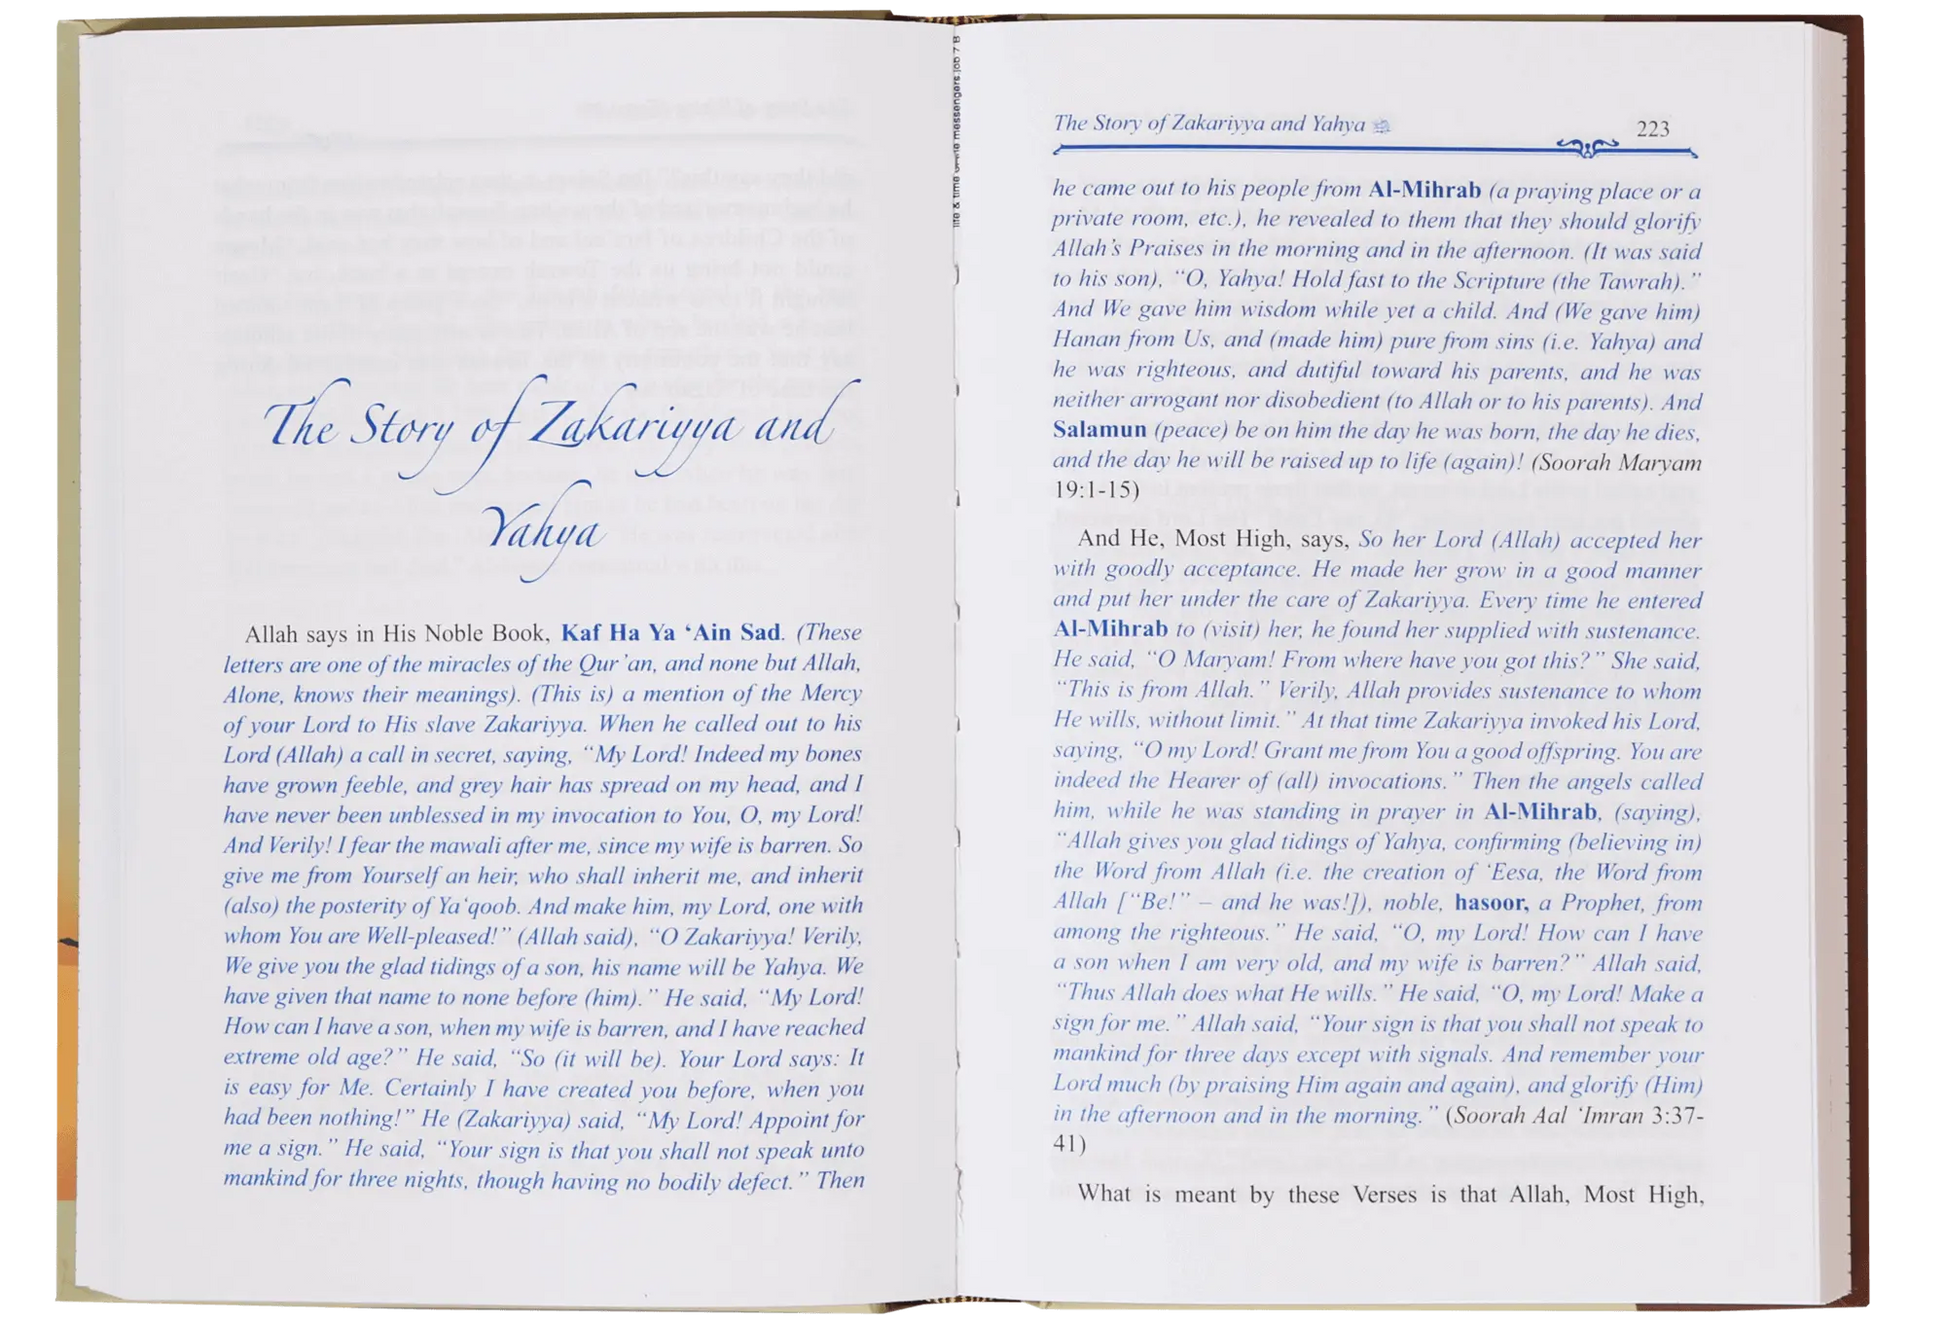 The Story of Zakariyya and
Yahya
Allah says in His Noble Book, Kaf Ha Ya ‘Ain Sad. (These
letters are one of the miracles of the Qur’an, and none but Allah,
Alone, knows their meanings). (This is) a mention of the Mercy
of your Lord to His slave Zakariyya. When he called out to his
Lord (Allah) a call in secret, saying, “My Lord! Indeed my bones
have grown feeble, and grey hair has spread on my head, and I
have never been unblessed in my invocation to You, O, my Lord!
And Verily! I fear the mawali after me, since my wife is barren. So
give me from Yourself an heir, who shall inherit me, and inherit
(also) the posterity of Ya‘qoob. And make him, my Lord, one with
whom You are Well-pleased!” (Allah said), “O Zakariyya! Verily,
We give you the glad tidings of a son, his name will be Yahya. We
have given that name to none before (him).” He said, “My Lord!
How can I have a son, when my wife is barren, and I have reached
extreme old age?” He said, “So (it will be). Your Lord says: It
is easy for Me. Certainly I have created you before, when you
had been nothing!” He (Zakariyya) said, “My Lord! Appoint for
me a sign.” He said, “Your sign is that you shall not speak unto
mankind for three nights, though having no bodily defect.” Then
life & time messengers.job 7 B
The Story of Zakariyya and Yahya 223
he came out to his people from Al-Mihrab (a praying place or a
private room, etc.), he revealed to them that they should glorify
Allah’s Praises in the morning and in the afternoon. (It was said
to his son), “O, Yahya! Hold fast to the Scripture (the Tawrah).”
And We gave him wisdom while yet a child. And (We gave him)
Hanan from Us, and (made him) pure from sins (i.e. Yahya) and
he was righteous, and dutiful toward his parents, and he was
neither arrogant nor disobedient (to Allah or to his parents). And
Salamun (peace) be on him the day he was born, the day he dies,
and the day he will be raised up to life (again)! (Soorah Maryam
19:1-15)
And He, Most High, says, So her Lord (Allah) accepted her
with goodly acceptance. He made her grow in a good manner
and put her under the care of Zakariyya. Every time he entered
Al-Mihrab to (visit) her, he found her supplied with sustenance.
He said, “O Maryam! From where have you got this?” She said,
“This is from Allah.” Verily, Allah provides sustenance to whom
He wills, without limit.” At that time Zakariyya invoked his Lord,
saying, “O my Lord! Grant me from You a good offspring. You are
indeed the Hearer of (all) invocations.” Then the angels called
him, while he was standing in prayer in Al-Mihrab, (saying),
“Allah gives you glad tidings of Yahya, confirming (believing in)
the Word from Allah (i.e. the creation of ‘Eesa, the Word from
Allah [“Be!” – and he was!]), noble, hasoor, a Prophet, from
among the righteous.” He said, “O, my Lord! How can I have
a son when I am very old, and my wife is barren?” Allah said,
“Thus Allah does what He wills.” He said, “O, my Lord! Make a
sign for me.” Allah said, “Your sign is that you shall not speak to
mankind for three days except with signals. And remember your
Lord much (by praising Him again and again), and glorify (Him)
in the afternoon and in the morning.” (Soorah Aal ‘Imran 3:37-
41)
What is meant by these Verses is that Allah, Most High,